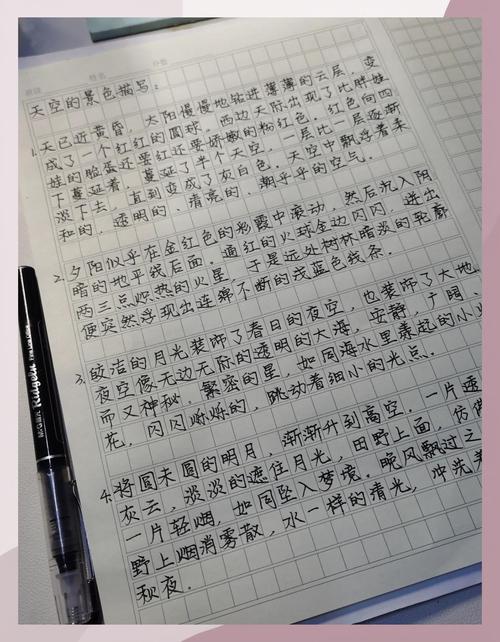 班级 姓名 分数
天空的景色描写：
1.天已近黄昏，太阳慢慢地钻进薄薄的云层，变
成了一个红红的圆球。西边天际出现了比胖娃
娃的脸蛋还要红还要娇嫩的粉红色。红色向四
下蔓延着，蔓延了半个天空，一层比一层逐渐
淡下去，直到变成了灰白色。天空中飘浮着柔
和的，透明的，清亮的，潮乎乎的空气。
2.夕阳似乎在金红色的彩霞中滚动，然后沉入阴
暗的地平线后面。通红的火球金边闪闪，迸出
两三点炽热的火星，于是远处树林暗淡的轮廓
便突然浮现出连绵不断的浅蓝色线条。
3.皎洁的月光装饰了春日的夜空，也装饰了大地。
夜空像无边无际的透明的大海，安静，广阔，
而又神秘。繁密的星，如同海水里漾起的小
花，闪闪烁烁的，跳动着细小的光点。
4.将圆未圆的明月，渐渐升到高空。一片透
灰云，淡淡的遮住月光，田野上面，仿佛
一片轻烟，如同坠入梦境。晚风飘过之
野上烟消雾散，水一样的清光，冲洗着
秋夜。
M&G晨光 Ridgeln